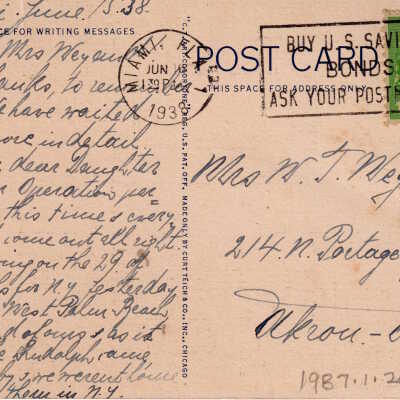 June 15.38
CE FOR WRITING MESSAGES
Mrs Weyand
to rem
have waited
ore in detail
dear Daughter
Operation per
this time & every
come out all right
ing on the 29 of
for N.Y. yesterday
West Palm Beach
as is
Rudolph came
we werent home
them in N.Y.
"C. T. ART-COLORTONE" REG. U.S. PAT. OFF. MADE ONLY BY CURT TEICH & CO., INC., CHICAGO
MIAMI, FLA.
JUN
1938
POST CARD
THIS SPACE FOR ADDRESS ONLY
BUY U.S. SAVI
BONDS
ASK YOUR POSTM
Mrs W. T. Wey
214. N. Portage
Akron - O
1987.1.2